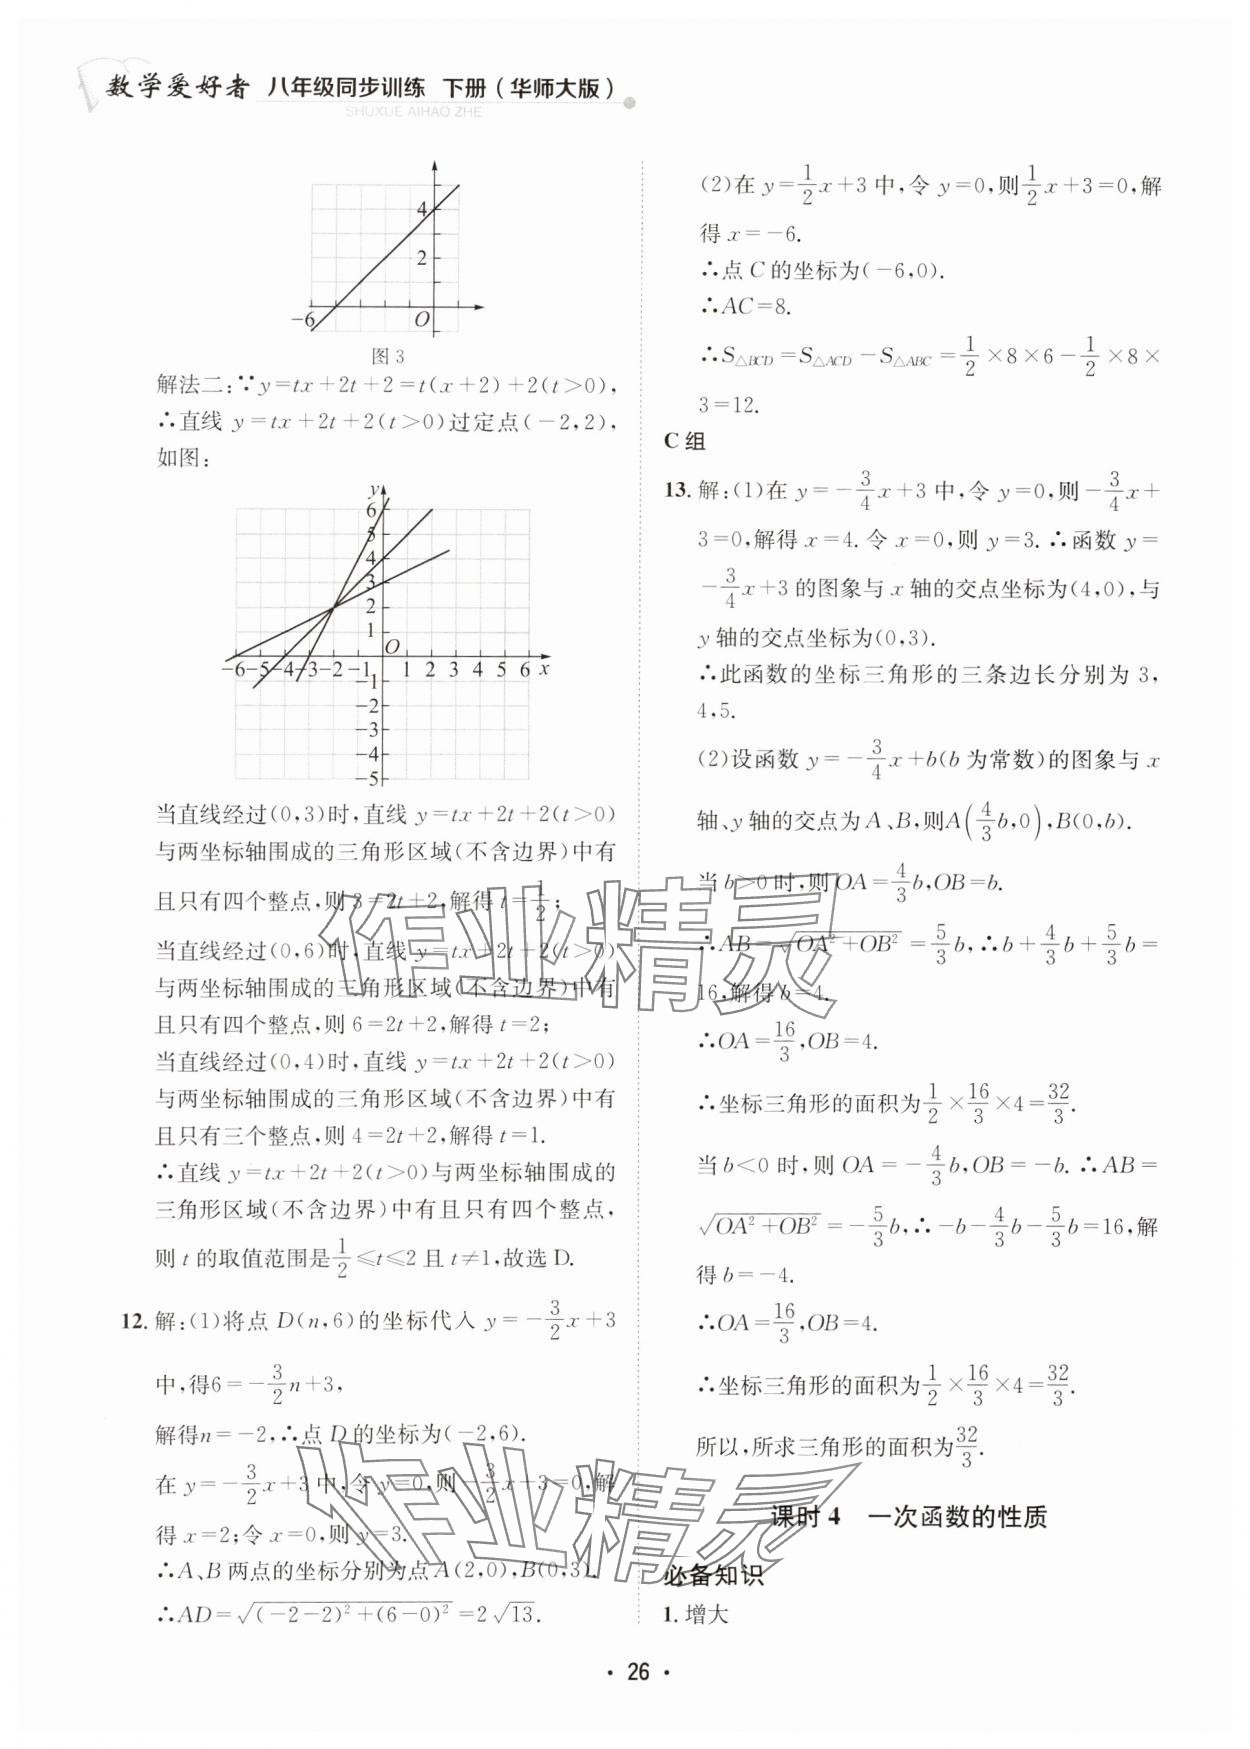 数学爱好者 八年级同步训练 下册(华师大版)
SHUXUE AIHAO ZHE
4
2
-6 O
图 3
解法二:∵y=tx+2t+2=t(x+2)+2(t>0),
∴直线 y=tx+2t+2(t>0)过定点(-2,2),
如图:
y
6
5
4
3
2
1
O
-6 -5 -4 -3 -2 -1 1 2 3 4 5 6 x
-1
-2
-3
-4
-5
当直线经过(0,3)时,直线 y=tx+2t+2(t>0)
与两坐标轴围成的三角形区域(不含边界)中有
且只有四个整点,则 3=2t+2,解得 t=1/2;
当直线经过(0,6)时,直线 y=tx+2t+2(t>0)
与两坐标轴围成的三角形区域(不含边界)中有
且只有四个整点,则 6=2t+2,解得 t=2;
当直线经过(0,4)时,直线 y=tx+2t+2(t>0)
与两坐标轴围成的三角形区域(不含边界)中有
且只有三个整点,则 4=2t+2,解得 t=1.
∴直线 y=tx+2t+2(t>0)与两坐标轴围成的
三角形区域(不含边界)中有且只有四个整点,
则 t 的取值范围是1/2≤t≤2 且 t≠1,故选 D.
12. 解:(1)将点 D(n,6)的坐标代入 y=-3/2x+3
中,得6=-3/2n+3,
解得n=-2,∴点 D 的坐标为(-2,6).
在 y=-3/2x+3 中,令 y=0,则-3/2x+3=0,解
得 x=2;令 x=0,则 y=3.
∴A、B 两点的坐标分别为点A(2,0),B(0,3).
∴AD=√((-2-2)²+(6-0)²)=2√13.
(2)在 y=1/2x+3 中,令 y=0,则1/2x+3=0,解
得 x=-6.
∴点 C 的坐标为(-6,0).
∴AC=8.
∴S△BCD=S△ACD-S△ABC=1/2×8×6-1/2×8×
3=12.
C 组
13. 解:(1)在 y=-3/4x+3 中,令 y=0,则-3/4x+
3=0,解得 x=4. 令 x=0,则 y=3. ∴函数 y=
-3/4x+3 的图象与 x 轴的交点坐标为(4,0),与
y 轴的交点坐标为(0,3).
∴此函数的坐标三角形的三条边长分别为 3,
4,5.
(2)设函数 y=-3/4x+b(b 为常数)的图象与 x
轴、y 轴的交点为 A、B,则A(4/3b,0),B(0,b).
当 b>0 时,则OA=4/3b,OB=b.
∴AB=√(OA²+OB²)=5/3b,∴b+4/3b+5/3b=
16,解得 b=4.
∴OA=16/3,OB=4.
∴坐标三角形的面积为1/2×16/3×4=32/3.
当 b<0 时,则 OA=-4/3b,OB=-b. ∴AB=
√(OA²+OB²)=-5/3b,∴-b-4/3b-5/3b=16,解
得 b=-4.
∴OA=16/3,OB=4.
∴坐标三角形的面积为1/2×16/3×4=32/3.
所以,所求三角形的面积为32/3.
课时 4 一次函数的性质
必备知识
1. 增大
作业精灵
作业精灵
· 26 ·